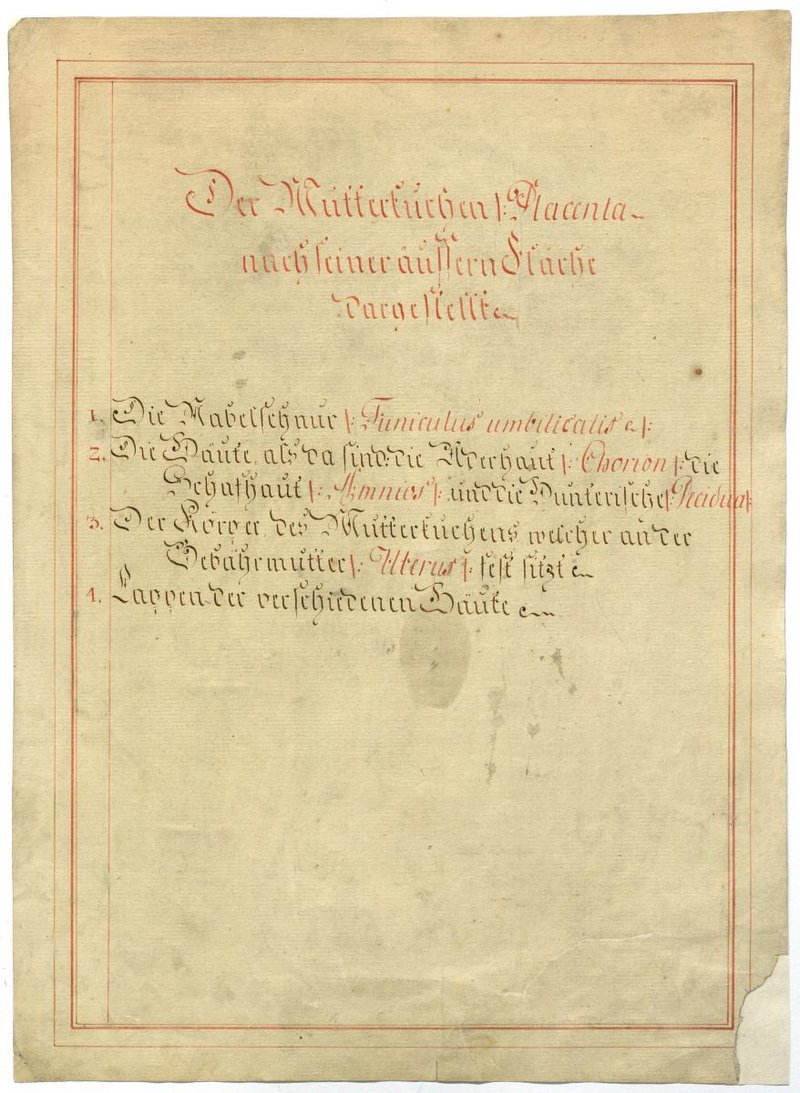 Der Mutterkuchen |: Placenta
nach seiner äußern Fläche
dargestellt
1. Die Nabelschnur |: Funiculus umbilicalis :|:
2. Die Häute, als da sind: die Aderhaut |: Chorion :| die
Schafhaut |: Amnios :| und die Hunterische |: Decidua :|
3. Der Körper des Mutterkuchens, welcher an der
Gebährmutter |: Uterus :| fest sitzt
4. Lappen der verschiedenen Häute